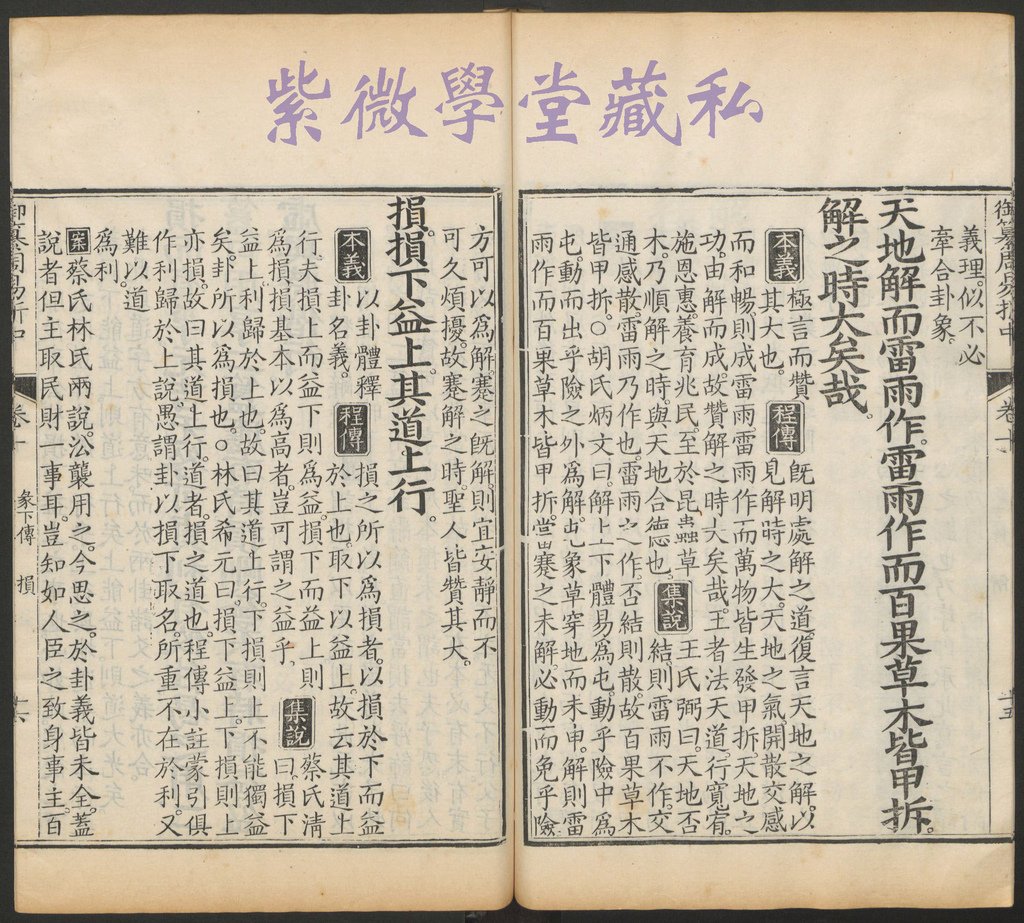 紫微學堂藏私
義理。似不必
牽合卦象。
天地解而雷雨作。雷雨作而百果草木皆甲拆。
解之時大矣哉。
本義 極言而贊其大也。 程傳 既明處解之道。復言天地之解。以見解時之大。天地之氣開散。交感
而和暢。則成雷雨。雷雨作而萬物皆生發甲拆。天地之
功。由解而成。故贊解之時大矣哉。王者法天道。行寬宥。
施恩惠。養育兆民。至於昆蟲草木。乃順解之時。與天地合德也。 集說 王氏弼曰。天地否結。則雷雨不作。交
通感散。雷雨乃作也。雷雨之作。否結則散。故百果草木
皆甲拆。○胡氏炳文曰。解上下體易為屯。動乎險中為
屯。動而出乎險之外為解。屯象草穿地而未申。解則雷
雨作而百果草木皆甲拆。當蹇之未解。必動而免乎險
方可以為解。蹇之既解。則宜安靜而不
可久煩擾。故蹇解之時。聖人皆贊其大。
損。損下益上。其道上行。
本義 以卦體釋卦名義。 程傳 損之所以為損者。以損於下而益於上也。取下以益上。故云其道上
行。夫損上而益下則為益。損下而益上則
為損。損基本以為高者。豈可謂之益乎。 集說 蔡氏淸曰。損下
益上。利歸於上也。故曰其道上行。下損則上不能獨益
矣。卦所以為損也。○林氏希元曰。損下益上。下損則上
亦損。故曰其道上行。道者。損之道也。程傳小註蒙引俱
作利歸於上說。愚謂卦以損下取名。所重不在於利。又
難以道
為利。
案 蔡氏林氏兩說。沿襲用之。今思之。於卦義皆未全。蓋
說者但主取民財一事耳。豈知如人臣之致身事主。百
彖下傳 損